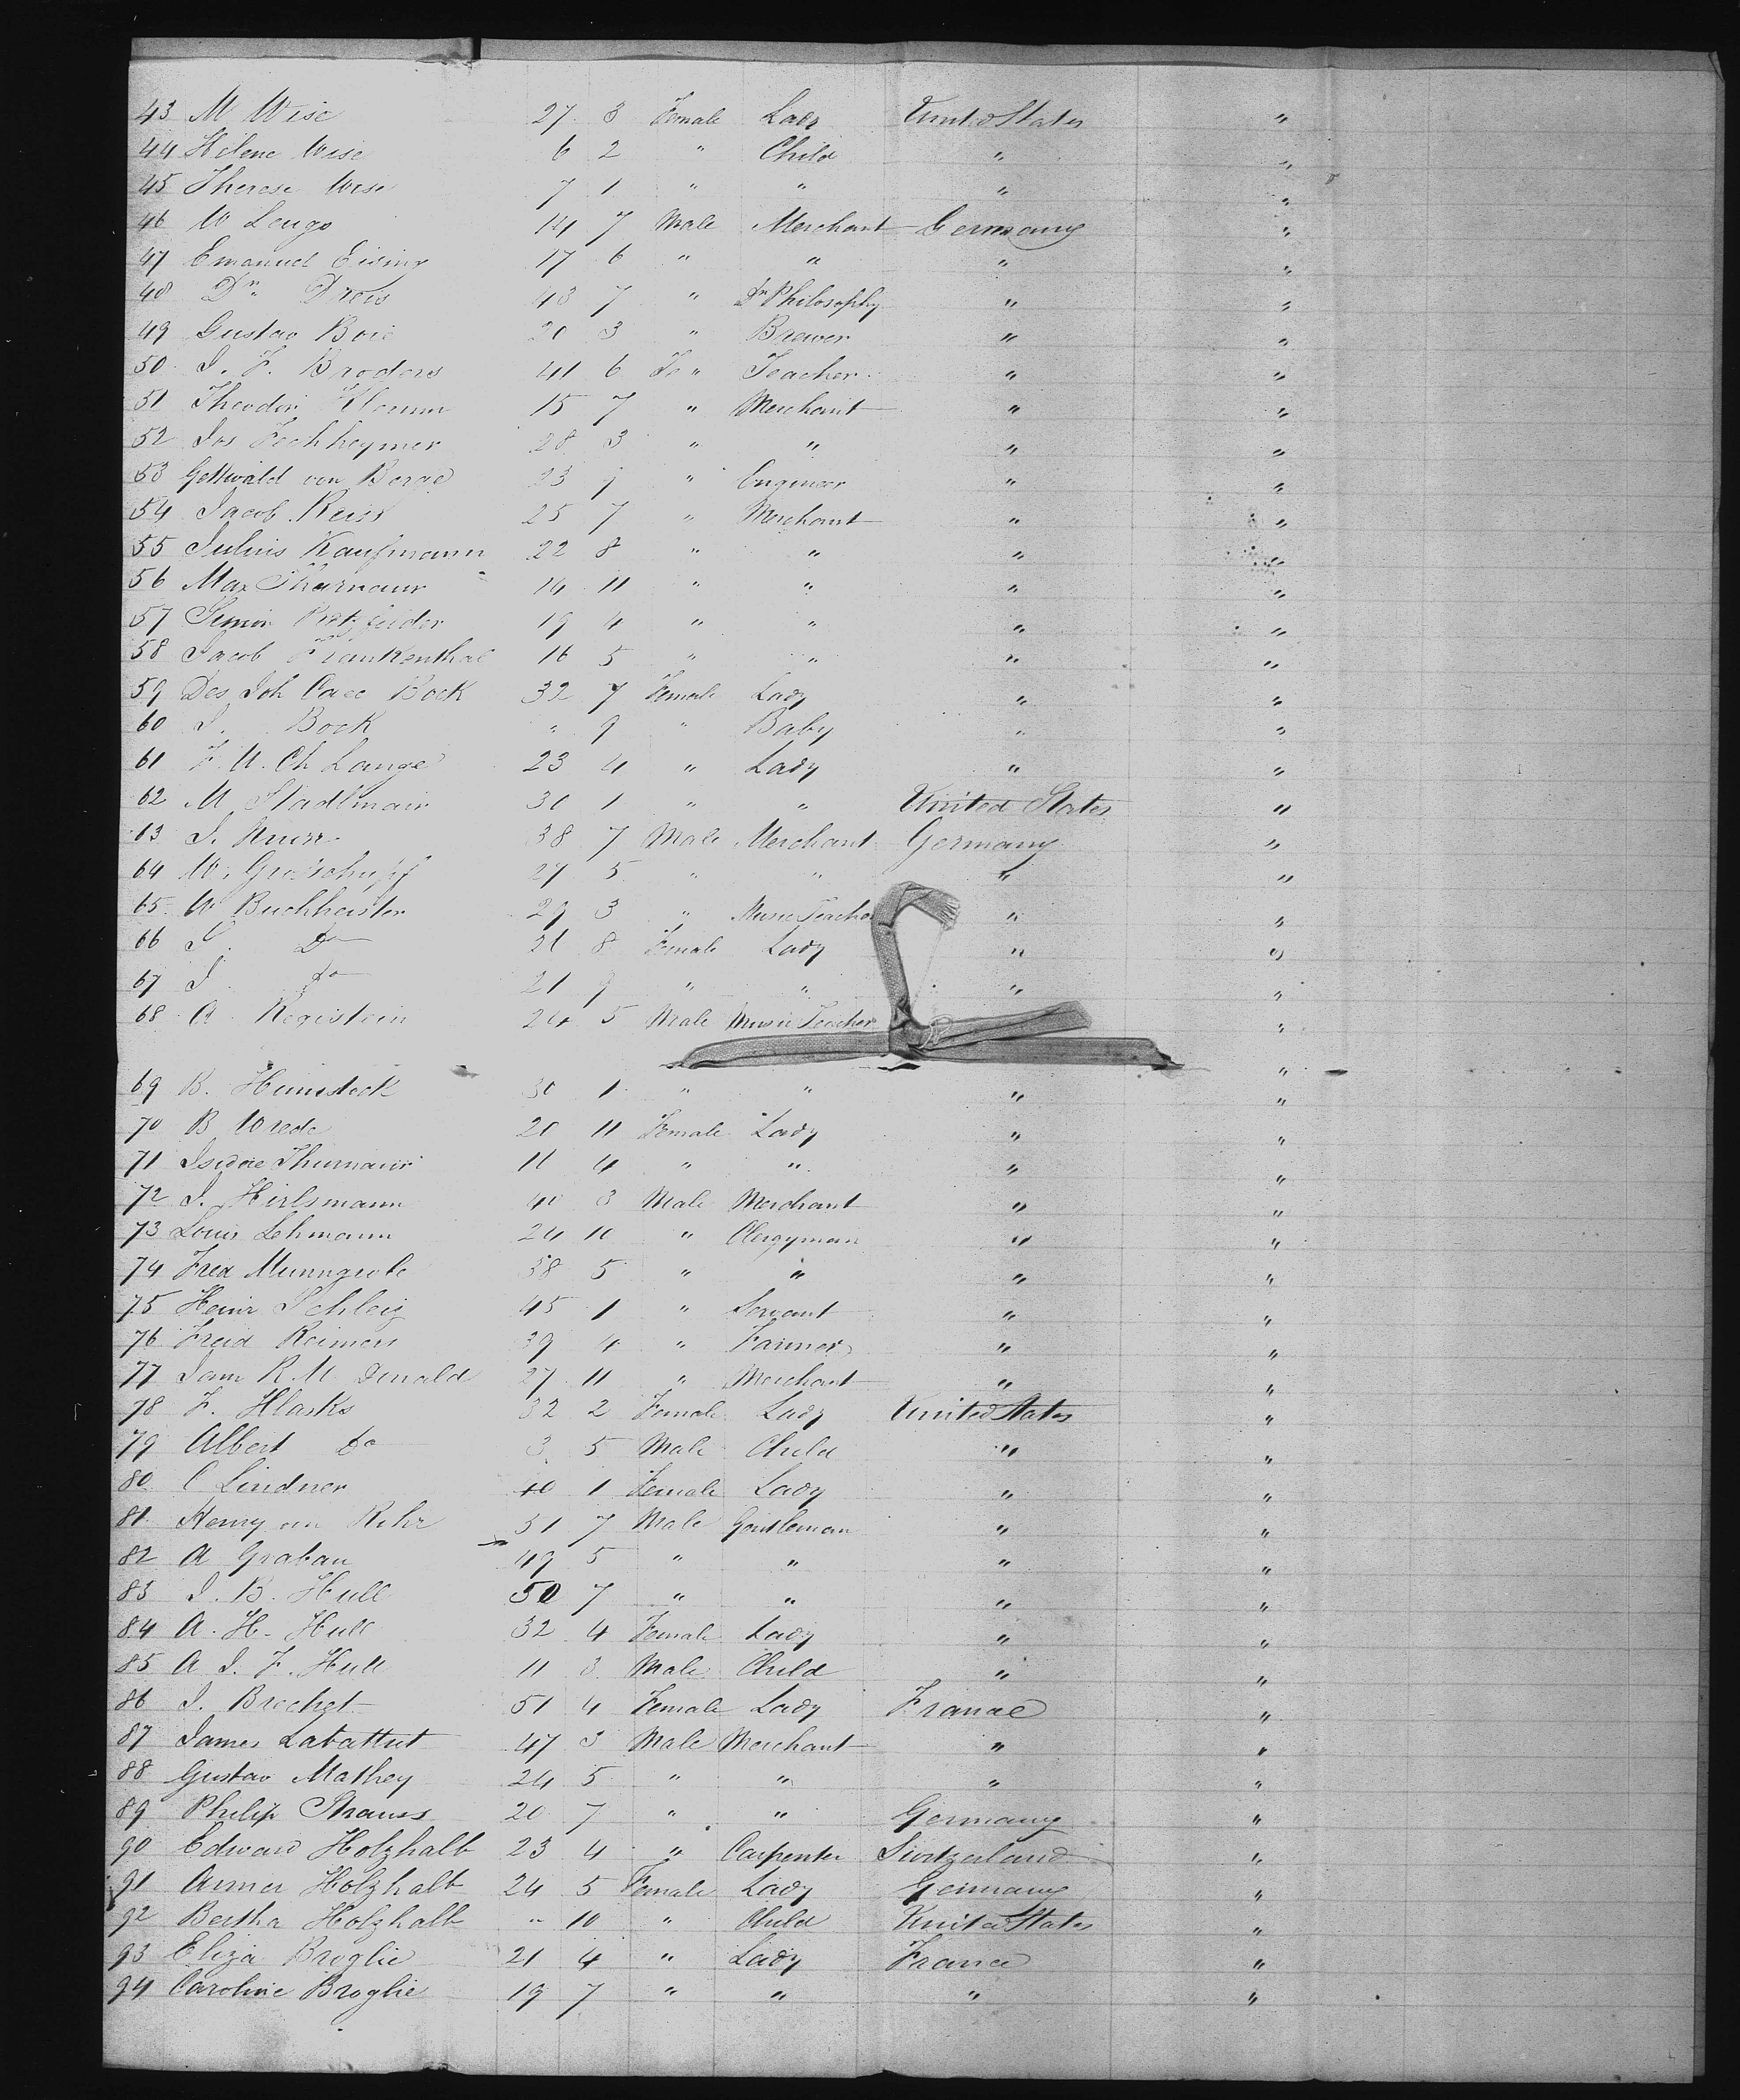 43 M Wise 27 8 Female Lady United States "
44 Helene Wise 6 2 " Child " "
45 Therese Wise 7 1 " " " "
46 W Lengo 14 7 Male Merchant Germany "
47 Emanuel Eising 17 6 " " " "
48 Dr. 43 7 " Dr Philosophy " "
49 Gustav Boie 20 3 " Brewer " "
50 J. F. Broders 41 6 " Teacher " "
51 Theodor 15 7 " Merchant " "
52 Jos Fechheymer 28 3 " " " "
53 Gottwald von Borae 23 9 " Engineer " "
54 Jacob Reiss 25 7 " Merchant " "
55 Julius Kaufmann 22 8 " " " "
56 Max Thurnauer 14 11 " " " "
57 Simon Pretzfelder 19 4 " " " "
58 Jacob Frankenthal 16 5 " " " "
59 Des Joh Caec Bock 32 7 Female Lady " "
60 J. Bock " 9 " Baby " "
61 F. W. Ch Lange 23 4 " Lady " "
62 M Stadlmair 30 1 " " United States "
63 J. 38 7 Male Merchant Germany "
64 W. Grosschupff 27 5 " " " "
65 W Buchheister 29 3 " Music Teacher " "
66 S. Do 21 8 Female Lady " "
67 J Do 21 9 " " " "
68 A Registein 24 5 Male Music Teacher "
"
69 B. Heimstock 30 1 " " " "
70 B Wrede 20 11 Female Lady " "
71 Isidore Thurnauer 11 4 " " " "
72 J. Hirlsmann 40 3 Male Merchant " "
73 Louis Lehmann 24 10 " Clergyman " "
74 Fred Munngrobe 38 5 " " " "
75 Heinr Schleig 45 1 " Servant " "
76 Fred Reimers 39 4 " Farmer " "
77 Jam R. M Donald 27 11 " Merchant " "
78 F. Hlasko 32 2 Female Lady United States "
79 Albert Do 3 5 Male Child " "
80 C Lindner 40 1 Female Lady " "
81 Henry von Rohr 31 7 Male Gentleman " "
82 A Grabau 49 5 " " " "
83 J. B. Hull 50 7 " " " "
84 A. H. Hull 32 4 Female Lady " "
85 A J. F. Hull 11 3 Male Child " "
86 J. Brechet 51 4 Female Lady France "
87 James Labattut 47 3 Male Merchant " "
88 Gustav Mathey 24 5 " " " "
89 Philip Strauss 20 7 " " Germany "
90 Edward Holzhalb 23 4 " Carpenter Switzerland "
91 Anna Holzhalb 24 5 Female Lady Germany "
92 Bertha Holzhalb " 10 " Child United States "
93 Eliza Broglie 21 4 " Lady France "
94 Caroline Broglie 19 7 " " " "